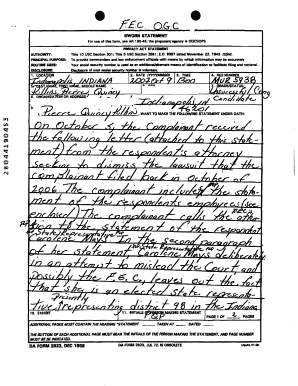 FEC OGC
SWORN STATEMENT
For use of this form, see AR 190-45; the proponent agency is ODCSOPS
PRIVACY ACT STATEMENT
AUTHORITY: Title 10 USC Section 301; Title 5 USC Section 2951; E.O. 9397 dated November 22, 1943 (SSN).
PRINCIPAL PURPOSE: To provide commanders and law enforcement officials with means by which information may be accurately
ROUTINE USES: Your social security number is used as an additional/alternate means of identification to facilitate filing and retrieval.
DISCLOSURE: Disclosure of your social security number is voluntary.
1. LOCATION 2. DATE (YYYYMMDD) 3. TIME 4. FILE NUMBER
Indianapolis, INDIANA 1300 MUR 5938
5. LAST NAME, FIRST NAME, MIDDLE NAME
Rollins, Pierre, Quincy
8. ORGANIZATION OR ADDRESS
Indianapolis, IN
46201
Candidate
9.
I, Pierre Quincy Rollins, WANT TO MAKE THE FOLLOWING STATEMENT UNDER OATH:
On October 5, the Complainant received
the following letter (attached to this state-
ment) from the respondent's attorney
seeking to dismiss the lawsuit that the
complainant filed back in October of
2006. The complainant includes the state-
ment of the respondents employees (see
enclosed). The complainant calls the FEC's atten-
tion to the statement of the respondent
State Representative
Carolene Mays. In the second paragraph
of her statement, Carolene Mays deliberately
in an attempt to mislead the Court, and
possibly the F.E.C., leaves out the fact
that she is an elected State representa-
tive presently representing district 98 in the Indiana
10. EXHIBIT 11. INITIALS OF PERSON MAKING STATEMENT
PQR PAGE 1 OF 2 PAGES
ADDITIONAL PAGES MUST CONTAIN THE HEADING "STATEMENT TAKEN AT DATED
THE BOTTOM OF EACH ADDITIONAL PAGE MUST BEAR THE INITIALS OF THE PERSON MAKING THE STATEMENT, AND PAGE NUMBER
MUST BE INDICATED.
DA FORM 2823, DEC 1998 DA FORM 2823, JUL 72, IS OBSOLETE
28044190453